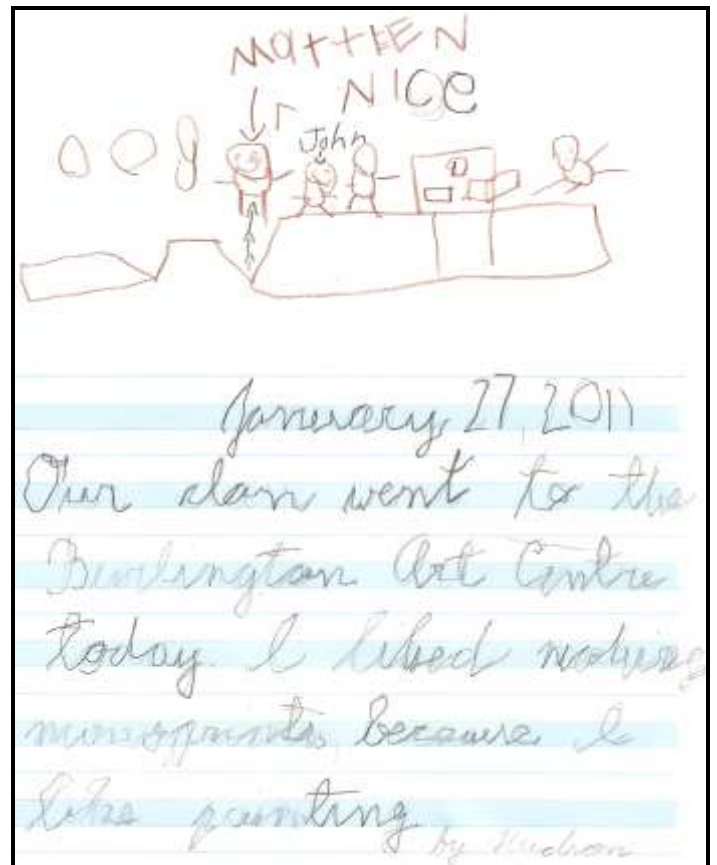 MATTHEW
NICE
John
January 27, 2011
Our class went to the
Burlington Art Centre
today. I liked making
monoprints, because I
like painting
by Hudson